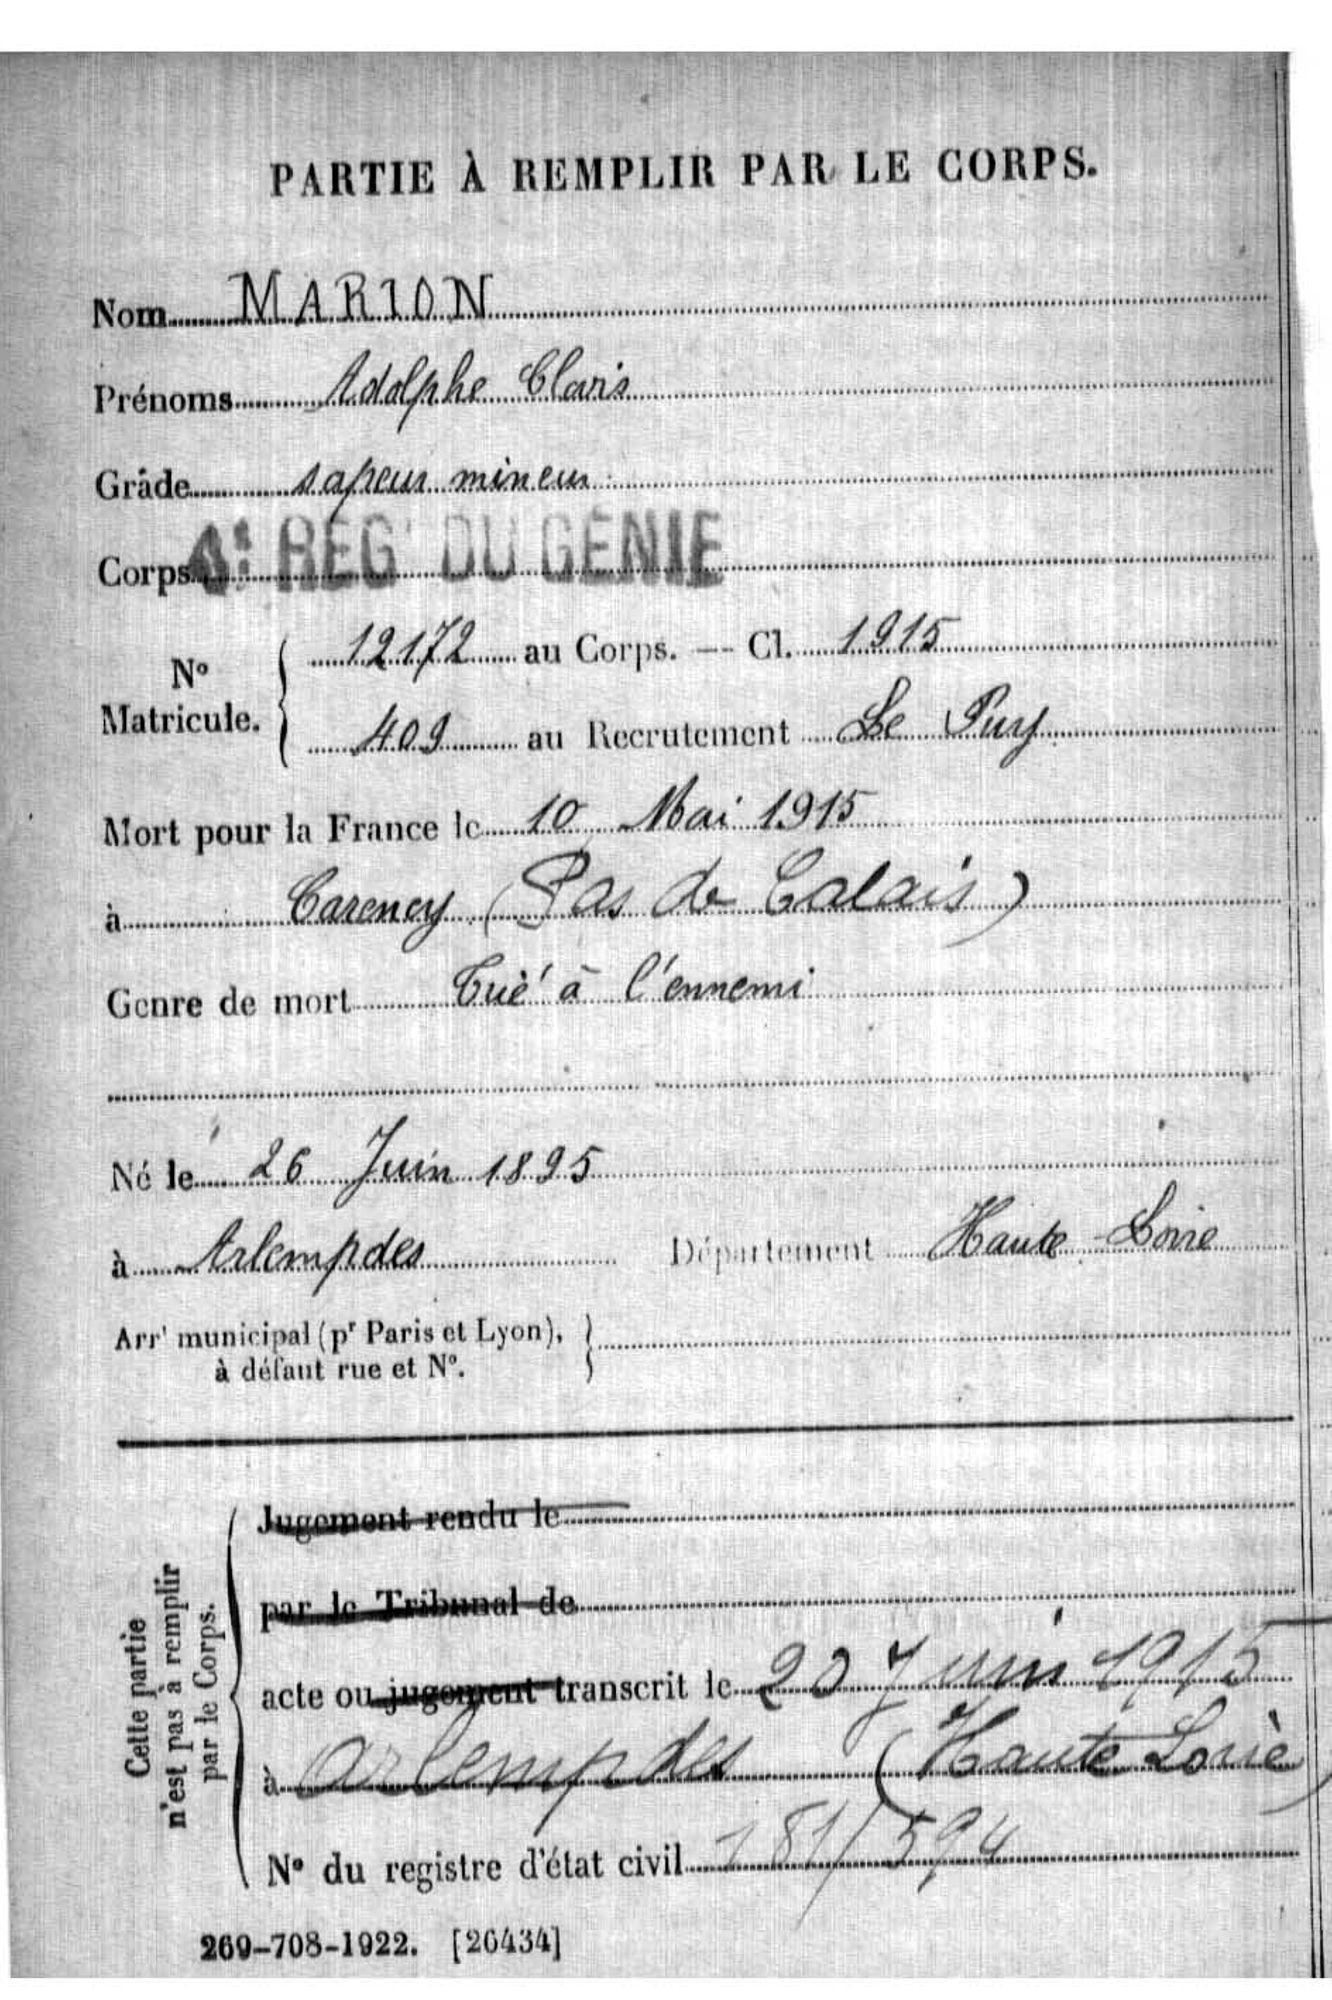 PARTIE À REMPLIR PAR LE CORPS.
Nom MARION
Prénoms Adolphe Claris
Grade sapeur mineur
Corps RÉGᵗ DU GÉNIE
Nº Matricule. 12172 au Corps. — Cl. 1915
409 au Recrutement Le Puy
Mort pour la France le 10 Mai 1915
à Carency (Pas de Calais)
Genre de mort Tué à l'ennemi
Né le 26 Juin 1895
à Arlempdes Département Haute-Loire
Arrᵗ municipal (pʳ Paris et Lyon),
à défaut rue et Nº.
Cette partie
n'est pas à remplir
par le Corps.
Jugement rendu le
par le Tribunal de
acte ou jugement transcrit le 20 Juin 1915
à Arlempdes (Haute Loire)
Nº du registre d'état civil 181/594
269-708-1922. [26434]